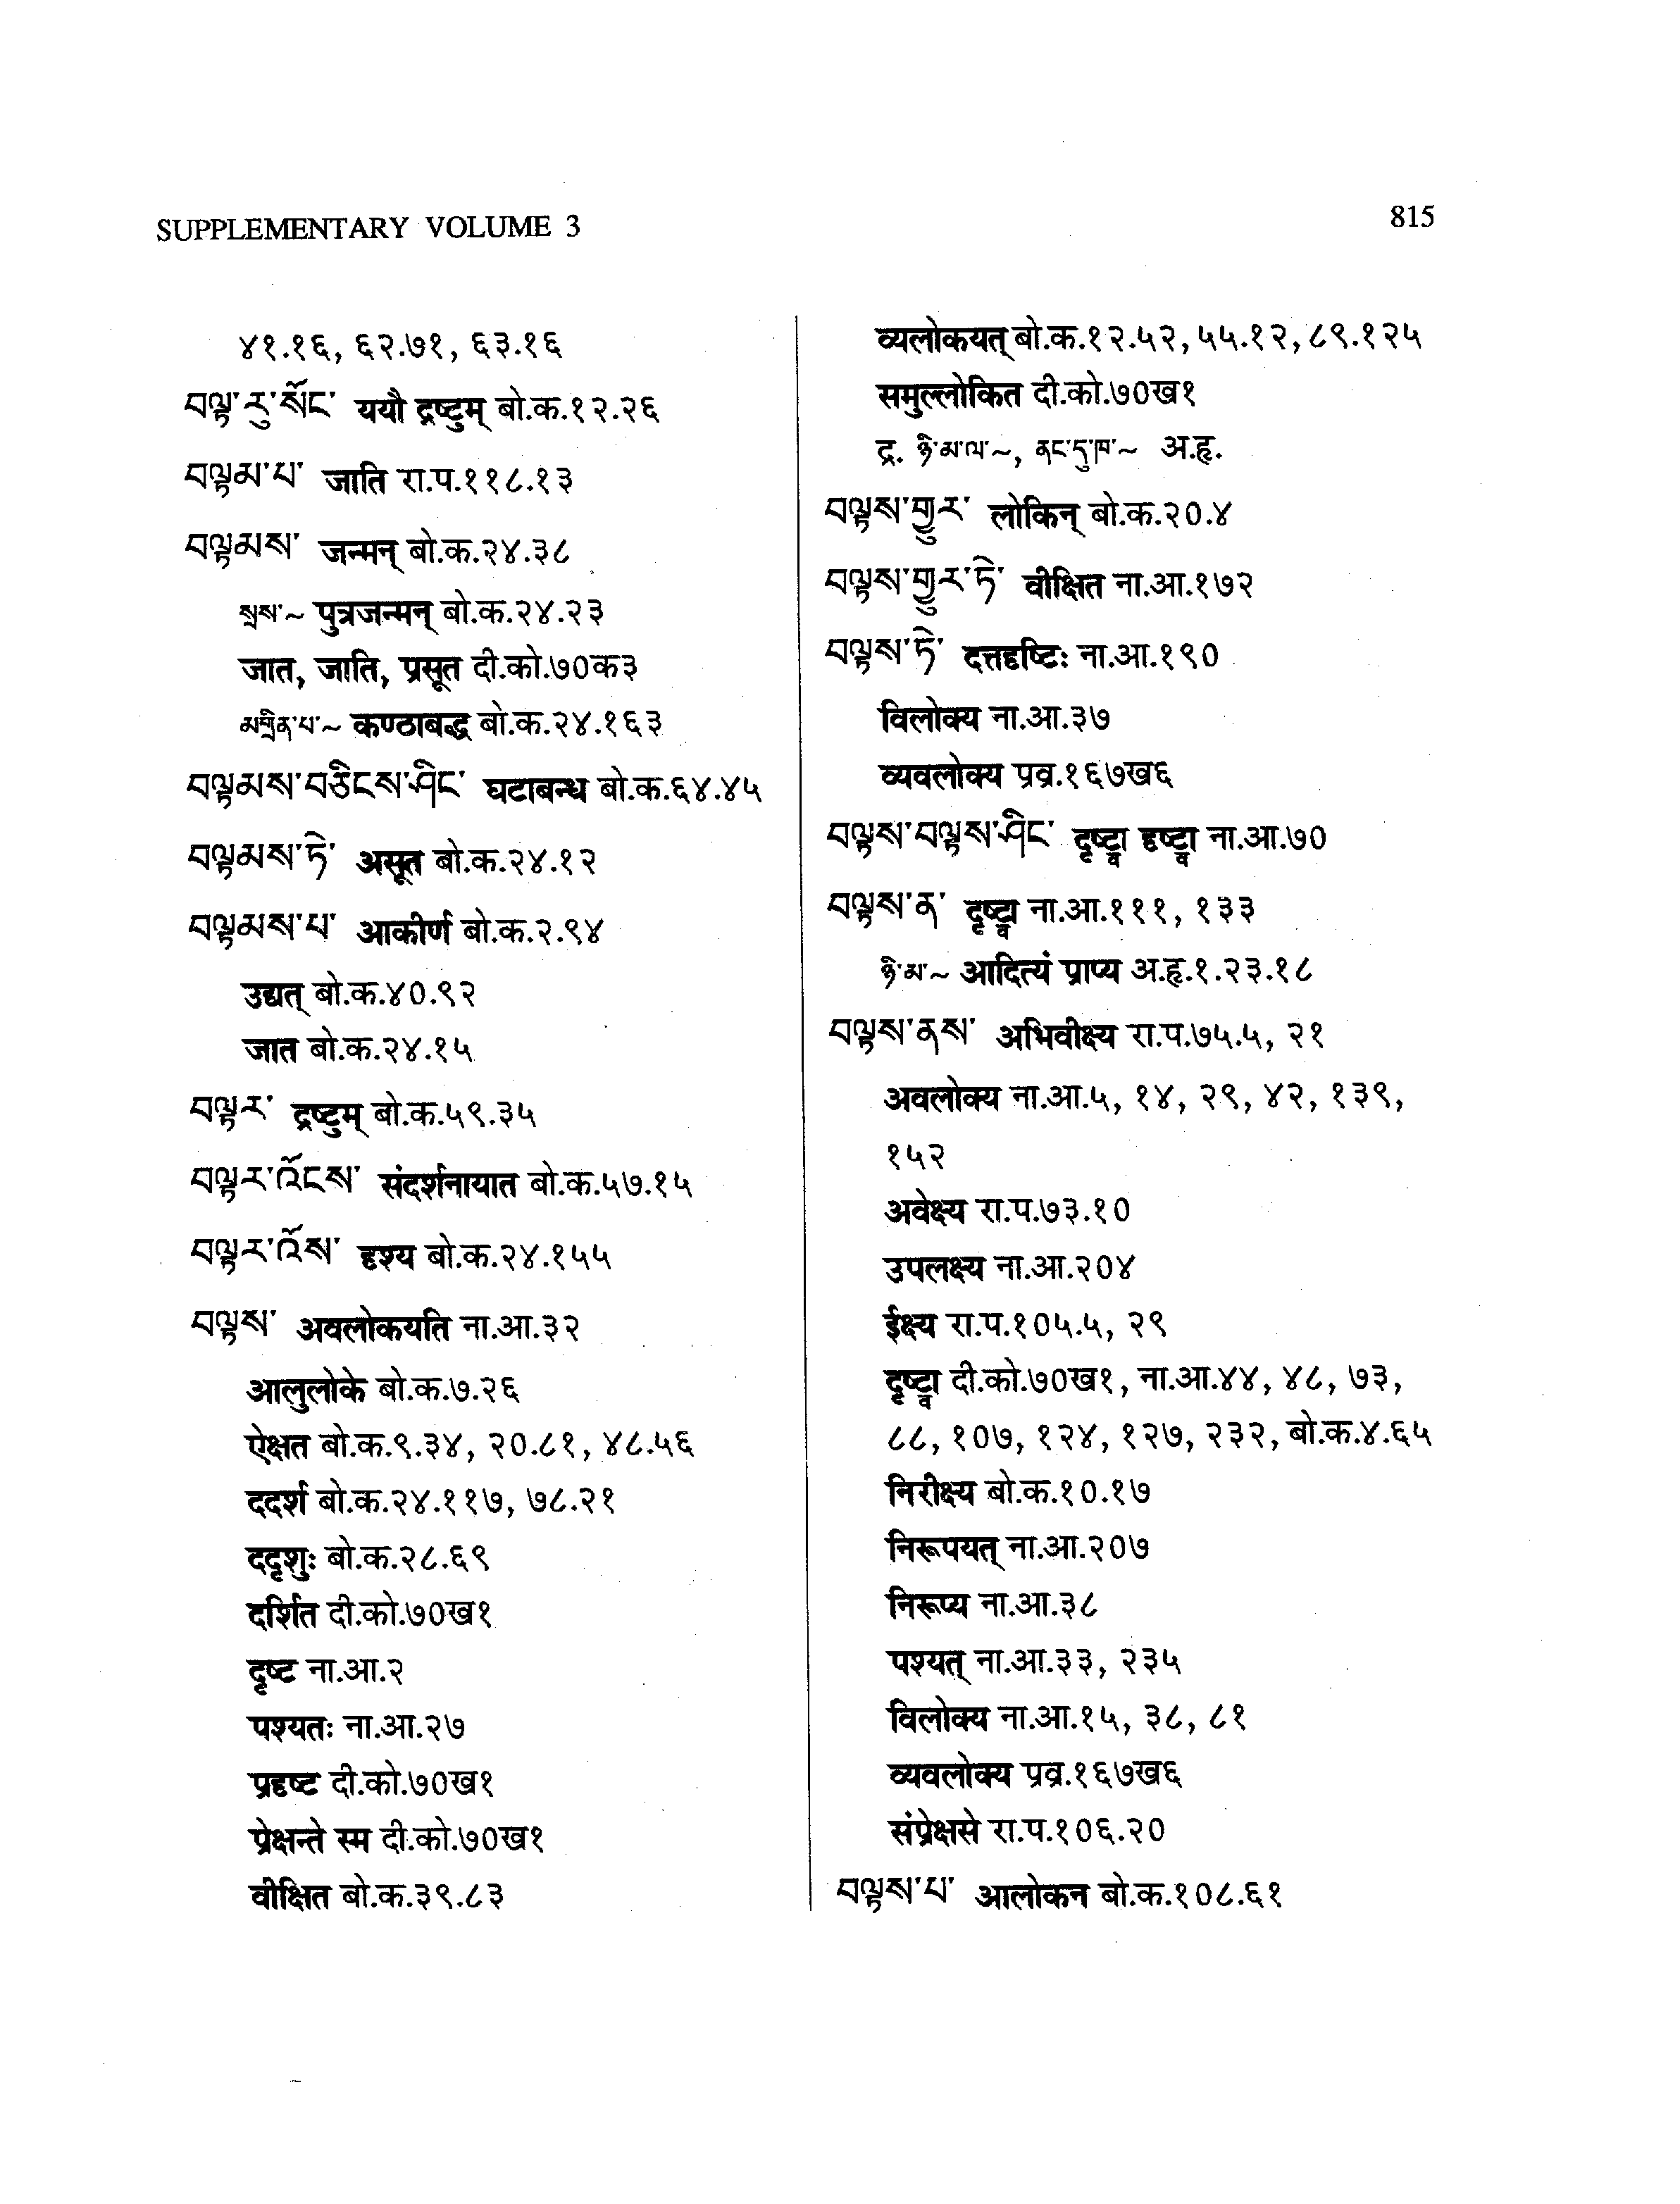 SUPPLEMENTARY VOLUME 3
815
४१.१६, ६२.७१, ६३.१६
བལྟ་རུ་སོང་ ययौ द्रष्टुम् बो.क.१२.२६
བལྟམ་པ་ जाति रा.प.११८.१३
བལྟམས་ जन्मन् बो.क.२४.३८
སྲས་~ पुत्रजन्मन् बो.क.२४.२३
जात, जाति, प्रसूत दी.को.७०क३
མགྲིན་པ་~ कण्ठाबद्ध बो.क.२४.१६३
བལྟམས་བཅིངས་ཤིང་ घटाबन्ध बो.क.६४.४५
བལྟམས་ཏེ་ असूत बो.क.२४.१२
བལྟམས་པ་ आकीर्ण बो.क.२.९४
उद्यत् बो.क.४०.९२
जात बो.क.२४.१५
བལྟར་ द्रष्टुम् बो.क.५९.३५
བལྟར་འོངས་ संदर्शनायात बो.क.५७.१५
བལྟར་འོས་ दृश्य बो.क.२४.१५५
བལྟས་ अवलोकयति ना.आ.३२
आलुलोके बो.क.७.२६
ऐक्षत बो.क.९.३४, २०.८१, ४८.५६
ददर्श बो.क.२४.११७, ७८.२१
ददृशुः बो.क.२८.६९
दर्शित दी.को.७०ख१
दृष्ट ना.आ.२
पश्यतः ना.आ.२७
प्रदृष्ट दी.को.७०ख१
प्रेक्षन्ते स्म दी.को.७०ख१
वीक्षित बो.क.३९.८३
व्यलोकयत् बो.क.१२.५२, ५५.१२, ८९.१२५
समुल्लोकित दी.को.७०ख१
द्र. ཉི་མ་ལ་~, ནང་དུ་ཁ་~ अ.हृ.
བལྟས་གྱུར་ लोकिन् बो.क.२०.४
བལྟས་གྱུར་ཏེ་ वीक्षित ना.आ.१७२
བལྟས་ཏེ་ दत्तदृष्टिः ना.आ.१९०
विलोक्य ना.आ.३७
व्यवलोक्य प्रव्र.१६७ख६
བལྟས་བལྟས་ཤིང་ दृष्ट्वा दृष्ट्वा ना.आ.७०
བལྟས་ན་ दृष्ट्वा ना.आ.१११, १३३
ཉི་མ་~ आदित्यं प्राप्य अ.हृ.१.२३.१८
བལྟས་ནས་ अभिवीक्ष्य रा.प.७५.५, २१
अवलोक्य ना.आ.५, १४, २९, ४२, १३९,
१५२
अवेक्ष्य रा.प.७३.१०
उपलक्ष्य ना.आ.२०४
ईक्ष्य रा.प.१०५.५, २९
दृष्ट्वा दी.को.७०ख१, ना.आ.४४, ४८, ७३,
८८, १०७, १२४, १२७, २३२, बो.क.४.६५
निरीक्ष्य बो.क.१०.१७
निरूपयत् ना.आ.२०७
निरूप्य ना.आ.३८
पश्यत् ना.आ.३३, २३५
विलोक्य ना.आ.१५, ३८, ८१
व्यवलोक्य प्रव्र.१६७ख६
संप्रेक्षसे रा.प.१०६.२०
བལྟས་པ་ आलोकन बो.क.१०८.६१